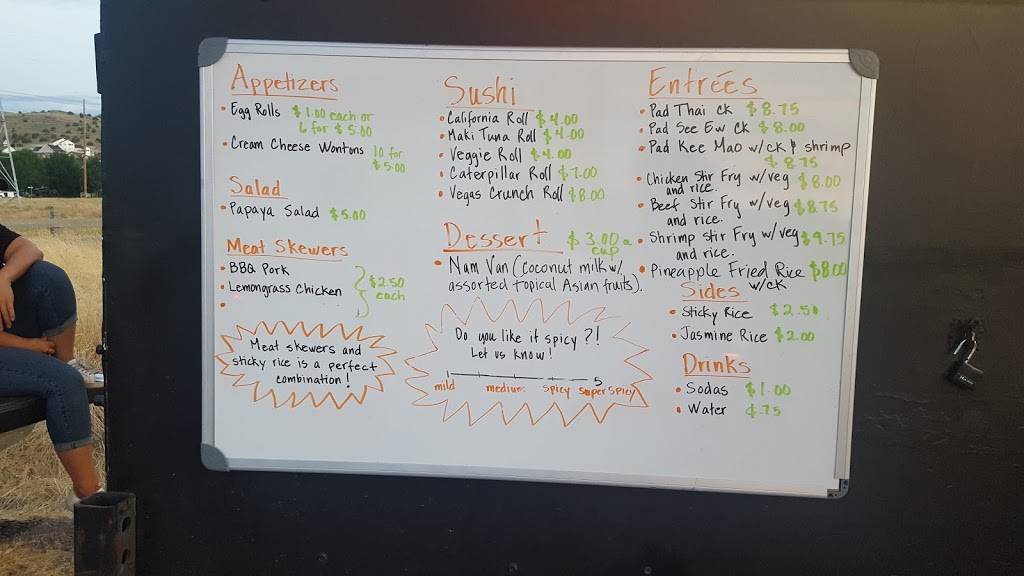 Appetizers
• Egg Rolls $1.00 each or
6 for $5.00
• Cream Cheese Wontons 10 for
$5.00
Salad
• Papaya Salad $5.00
Meat Skewers
• BBQ Pork
• Lemongrass Chicken
$2.50
each
•
Meat skewers and
sticky rice is a perfect
combination!
Sushi
• California Roll $4.00
• Maki Tuna Roll $4.00
• Veggie Roll $4.00
• Caterpillar Roll $7.00
• Vegas Crunch Roll $8.00
Dessert $3.00 a
cup
• Nam Van (coconut milk w/
assorted topical Asian fruits).
Do you like it spicy?!
Let us know!
1 5
mild medium spicy super spicy
Entrées
• Pad Thai ck $8.75
• Pad See Ew ck $8.00
• Pad Kee Mao w/ck & shrimp
$8.75
• Chicken Stir Fry w/veg $8.00
and rice.
• Beef Stir Fry w/veg $8.75
and rice.
• Shrimp Stir Fry w/veg $9.75
and rice.
• Pineapple Fried Rice $8.00
w/ck
Sides
• Sticky Rice $2.50
• Jasmine Rice $2.00
Drinks
• Sodas $1.00
• Water $.75